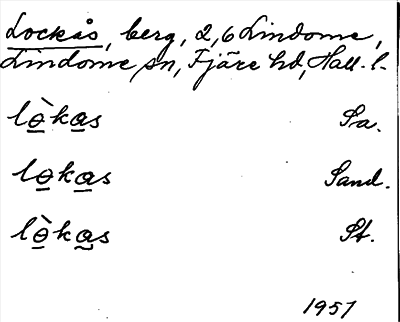 Lockås, berg, 2,6 Lindome,
Lindome sn, Fjäre hd, Hall. l.
lò̲ka̲s Sa.
lo̲ka̲s Sand.
lò̲ka̲s St.
1957